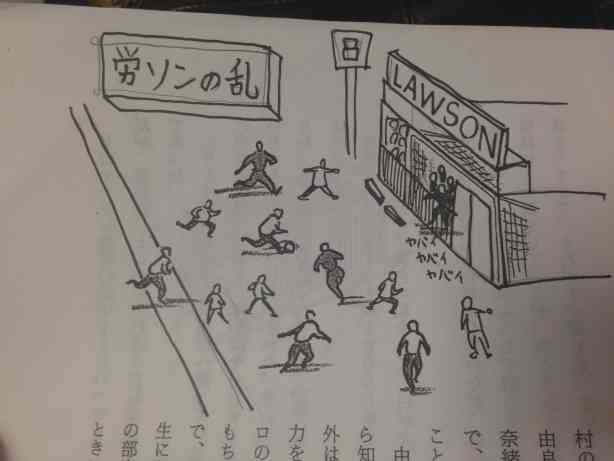 労ソンの乱
LAWSON
ヤバイ
ヤバイ
ヤバイ
村の
由良
奈緒
で、
こと
由
ら知
外は
力を
ロの
もち
で、
生に
の部
とき